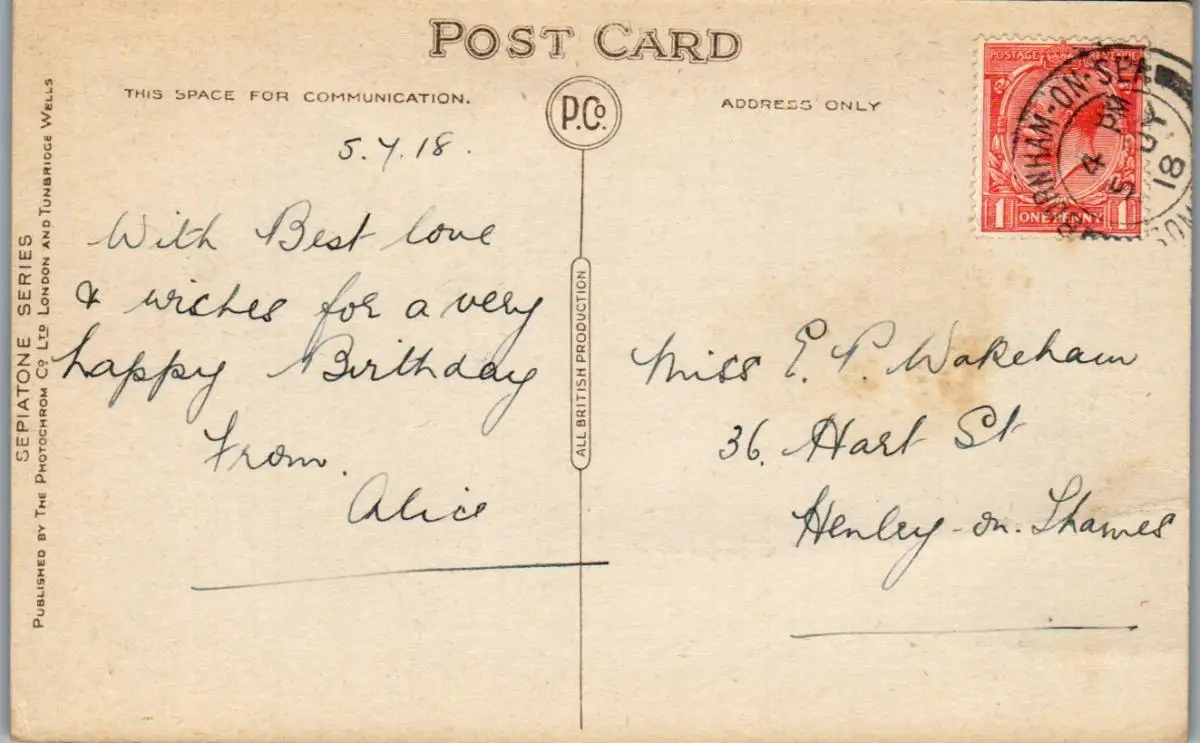 POST CARD
THIS SPACE FOR COMMUNICATION.
P.Co.
ADDRESS ONLY
5.7.18.
With Best love
& wishes for a very
happy Birthday
From.
Alice
Miss E. P. Wakeham
36. Hart St
Henley-on-Thames
ALL BRITISH PRODUCTION
SEPIATONE SERIES
PUBLISHED BY THE PHOTOCHROM CO LTD LONDON AND TUNBRIDGE WELLS
POSTAGE REVENUE
1 ONE PENNY 1
BURNHAM-ON-SEA
4 PM
5 JY
18
SOM